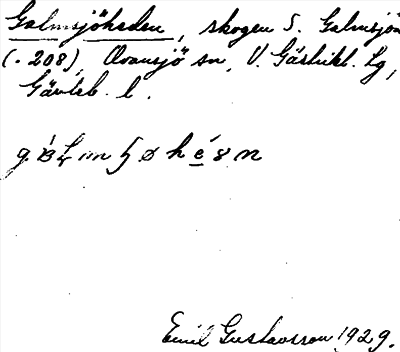 Galmsjöheden, skogen S. Galmsjön
(. 208), Ovansjö sn, V. Gästrikl. Lg,
Gävleb. l.
Emil Gustavsson 1929.